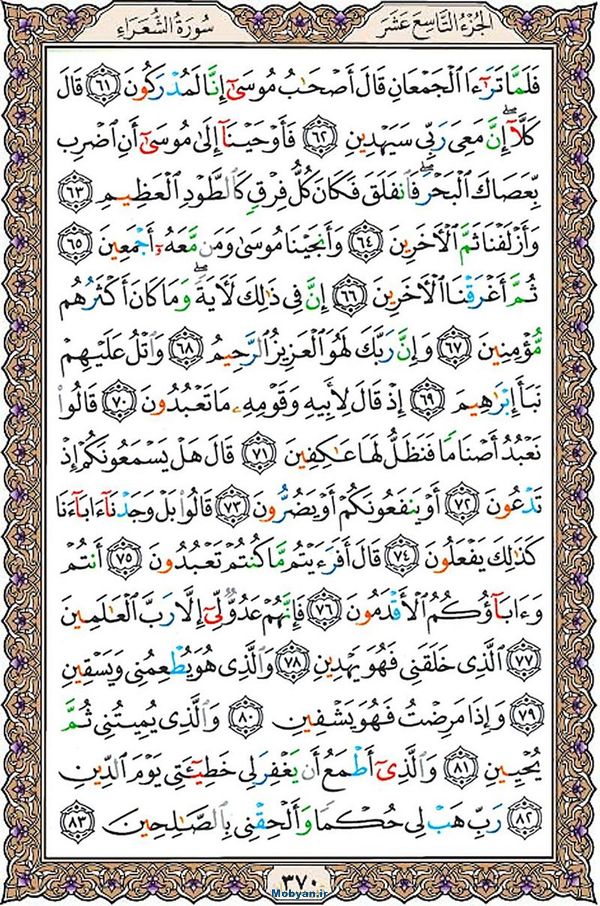 الجُزءُ التَّاسِعَ عَشَرَ
سُورَةُ الشُّعَرَاءِ
فَلَمَّا تَرَٰٓءَا ٱلۡجَمۡعَانِ قَالَ أَصۡحَٰبُ مُوسَىٰٓ إِنَّا لَمُدۡرَكُونَ ٦١ قَالَ
كَلَّآۖ إِنَّ مَعِيَ رَبِّي سَيَهۡدِينِ ٦٢ فَأَوۡحَيۡنَآ إِلَىٰ مُوسَىٰٓ أَنِ ٱضۡرِب
بِّعَصَاكَ ٱلۡبَحۡرَۖ فَٱنفَلَقَ فَكَانَ كُلُّ فِرۡقٖ كَٱلطَّوۡدِ ٱلۡعَظِيمِ ٦٣
وَأَزۡلَفۡنَا ثَمَّ ٱلۡأٓخَرِينَ ٦٤ وَأَنجَيۡنَا مُوسَىٰ وَمَن مَّعَهُۥٓ أَجۡمَعِينَ ٦٥
ثُمَّ أَغۡرَقۡنَا ٱلۡأٓخَرِينَ ٦٦ إِنَّ فِي ذَٰلِكَ لَأٓيَةٗۖ وَمَا كَانَ أَكۡثَرُهُم
مُّؤۡمِنِينَ ٦٧ وَإِنَّ رَبَّكَ لَهُوَ ٱلۡعَزِيزُ ٱلرَّحِيمُ ٦٨ وَٱتۡلُ عَلَيۡهِمۡ
نَبَأَ إِبۡرَٰهِيمَ ٦٩ إِذۡ قَالَ لِأَبِيهِ وَقَوۡمِهِۦ مَا تَعۡبُدُونَ ٧٠ قَالُواْ
نَعۡبُدُ أَصۡنَامٗا فَنَظَلُّ لَهَا عَٰكِفِينَ ٧١ قَالَ هَلۡ يَسۡمَعُونَكُمۡ إِذۡ
تَدۡعُونَ ٧٢ أَوۡ يَنفَعُونَكُمۡ أَوۡ يَضُرُّونَ ٧٣ قَالُواْ بَلۡ وَجَدۡنَآ ءَابَآءَنَا
كَذَٰلِكَ يَفۡعَلُونَ ٧٤ قَالَ أَفَرَءَيۡتُم مَّا كُنتُمۡ تَعۡبُدُونَ ٧٥ أَنتُمۡ
وَءَابَآؤُكُمُ ٱلۡأَقۡدَمُونَ ٧٦ فَإِنَّهُمۡ عَدُوّٞ لِّيٓ إِلَّا رَبَّ ٱلۡعَٰلَمِينَ
٧٧ ٱلَّذِي خَلَقَنِي فَهُوَ يَهۡدِينِ ٧٨ وَٱلَّذِي هُوَ يُطۡعِمُنِي وَيَسۡقِينِ
٧٩ وَإِذَا مَرِضۡتُ فَهُوَ يَشۡفِينِ ٨٠ وَٱلَّذِي يُمِيتُنِي ثُمَّ
يُحۡيِينِ ٨١ وَٱلَّذِيٓ أَطۡمَعُ أَن يَغۡفِرَ لِي خَطِيٓـَٔتِي يَوۡمَ ٱلدِّينِ
٨٢ رَبِّ هَبۡ لِي حُكۡمٗا وَأَلۡحِقۡنِي بِٱلصَّٰلِحِينَ ٨٣
٣٧٠
Mobyan.ir